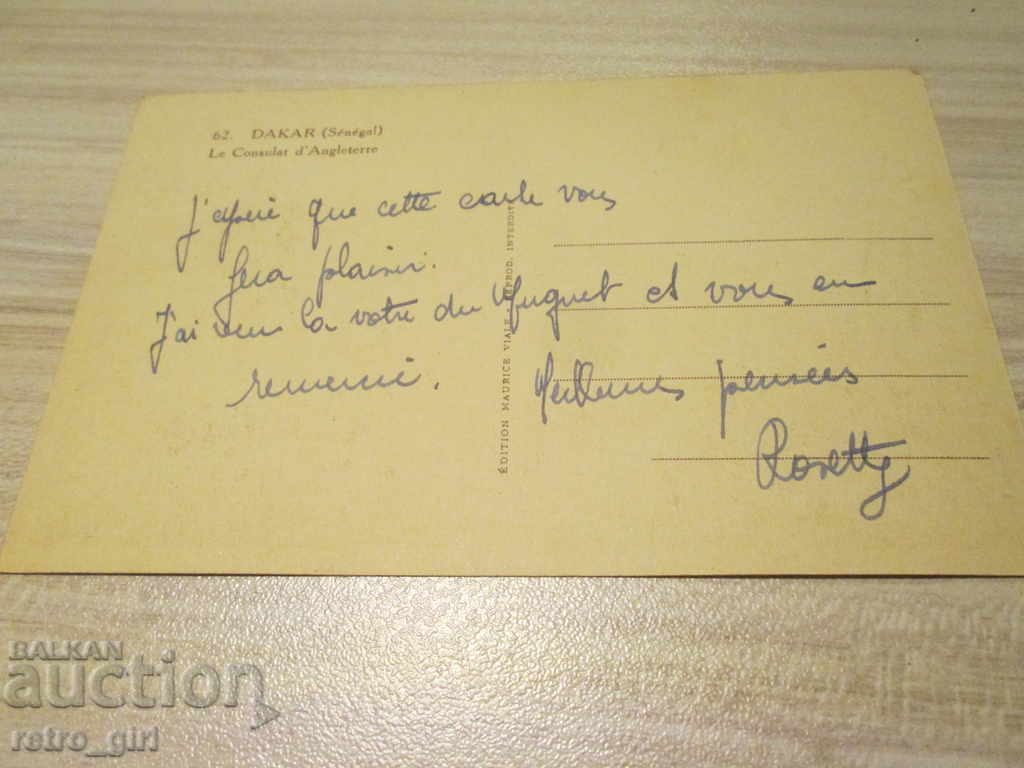 62. DAKAR (Sénégal)
Le Consulat d'Angleterre
J'espère que cette carte vous
fera plaisir.
J'ai reçu la votre du Muguet et vous en
remercie.
Meilleures pensées
Rosetty
ÉDITION MAURICE VIALE REPROD. INTERDITE
BALKAN
auction
retro_girl